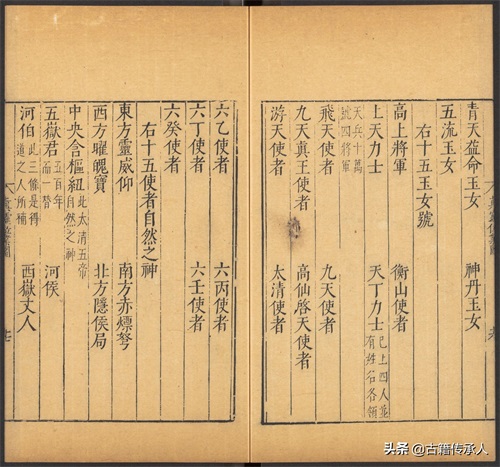 青天益命玉女　神丹玉女
五流玉女
右十五玉女號
高上將軍　衡山使者
上天力士　天丁力士已上四人並有姓名各領
天兵十萬號四將軍
飛天使者　九天使者
九天真王使者　高仙啓天使者
游天使者　太清使者
六乙使者　六丙使者
六丁使者　六壬使者
六癸使者
右十五使者自然之神
東方靈威仰　南方赤熛弩
西方曜魄寶　北方隱侯局
中央含樞紐此太清五帝自然之神
五嶽君五百年而一替　河侯
河伯此三條是得道之人所補　西嶽丈人
头条 @古籍传承人